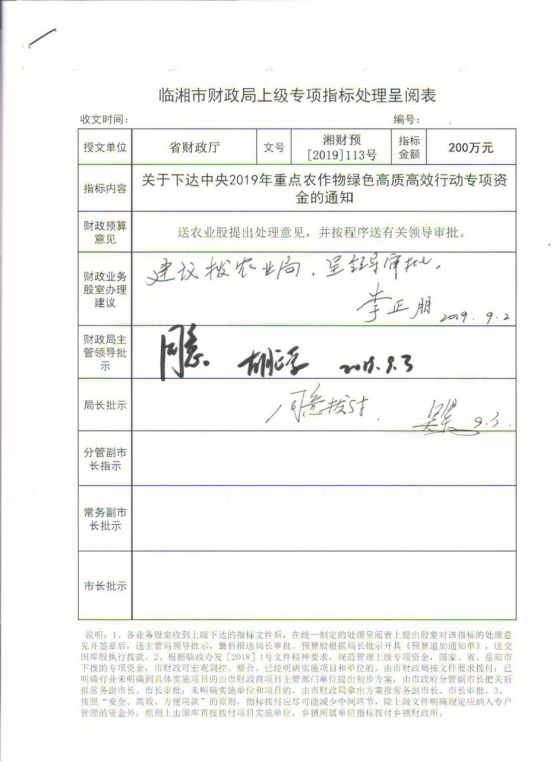 临湘市财政局上级专项指标处理呈阅表
收文时间： 编号：
授文单位 省财政厅 文号 湘财预[2019]113号 指标金额 200万元
指标内容 关于下达中央2019年重点农作物绿色高质高效行动专项资
金的通知
财政预算
意见
送农业股提出处理意见，并按程序送有关领导审批。
财政业务
股室办理
建议
建议拨农业局，呈领导审批。
李正朋 2019.9.2
财政局主
管领导批
示
同意 2019.9.3
局长批示
同意拨付. 9.3
分管副市
长指示
常务副市
长批示
市长批示
说明：1、各业务股室收到上级下达的指标文件后，在统一制定的处理呈阅表上提出股室对该指标的处理意
见并签章后，送主管局领导批示，最后报送局长审批。预算股根据局长批示开具《预算追加通知单》，送交
国库股执行拨款。2、根据临政办发[2018]1号文件精神要求，规范管理上级专项资金，国家、省、岳阳市
下拨的专项资金，市财政可宏观调控、整合。已经明确实施项目和单位的，由市财政局按文件要求拨付；已
明确行业未明确到具体实施项目的由市财政商项目主管部门单位提出初步方案，由市政府分管副市长把关后
报常务副市长、市长审批；未明确实施单位和项目的，由市财政局拿出方案报常务副市长、市长审批。3、
按照“安全、高效、方便用款”的原则，指标拨付应尽可能减少中间环节，除上级文件明确规定应纳入专户
管理的资金外，原则上由国库直接拨付项目实施单位，乡镇所属单位指标拨付乡镇财政所。